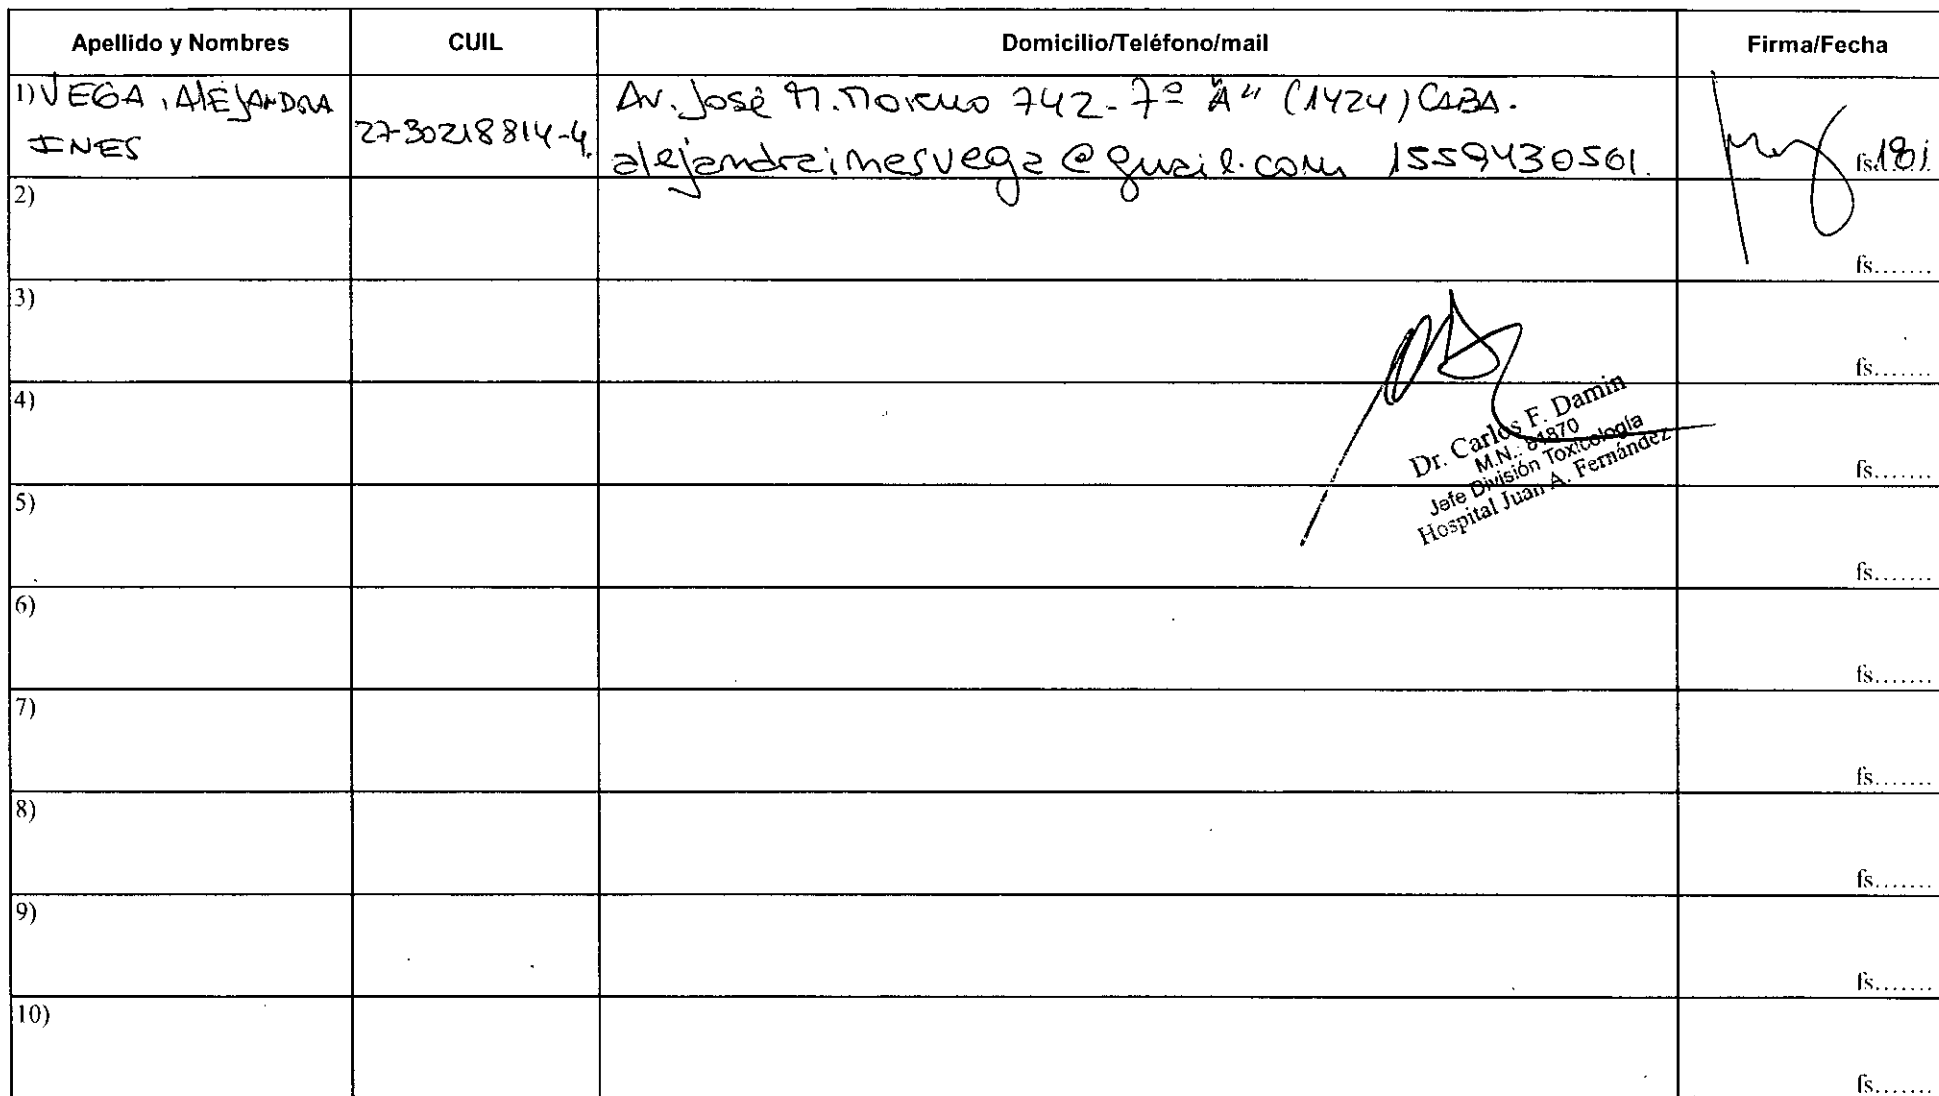 Apellido y Nombres CUIL Domicilio/Teléfono/mail Firma/Fecha
1) VEGA, AlEJANDRA
INES
27-30218814-4.
Av. José M. Moreno 742 - 7º "A" (1424) CABA.
alejandrainesvega@gmail.com 1559430561.
fs.181
2)
fs.......
3)
fs.......
4)
Dr. Carlos F. Damin
M.N.: 81870
Jefe División Toxicología
Hospital Juan A. Fernández
fs.......
5)
fs.......
6)
fs.......
7)
fs.......
8)
fs.......
9)
fs.......
10)
fs.......